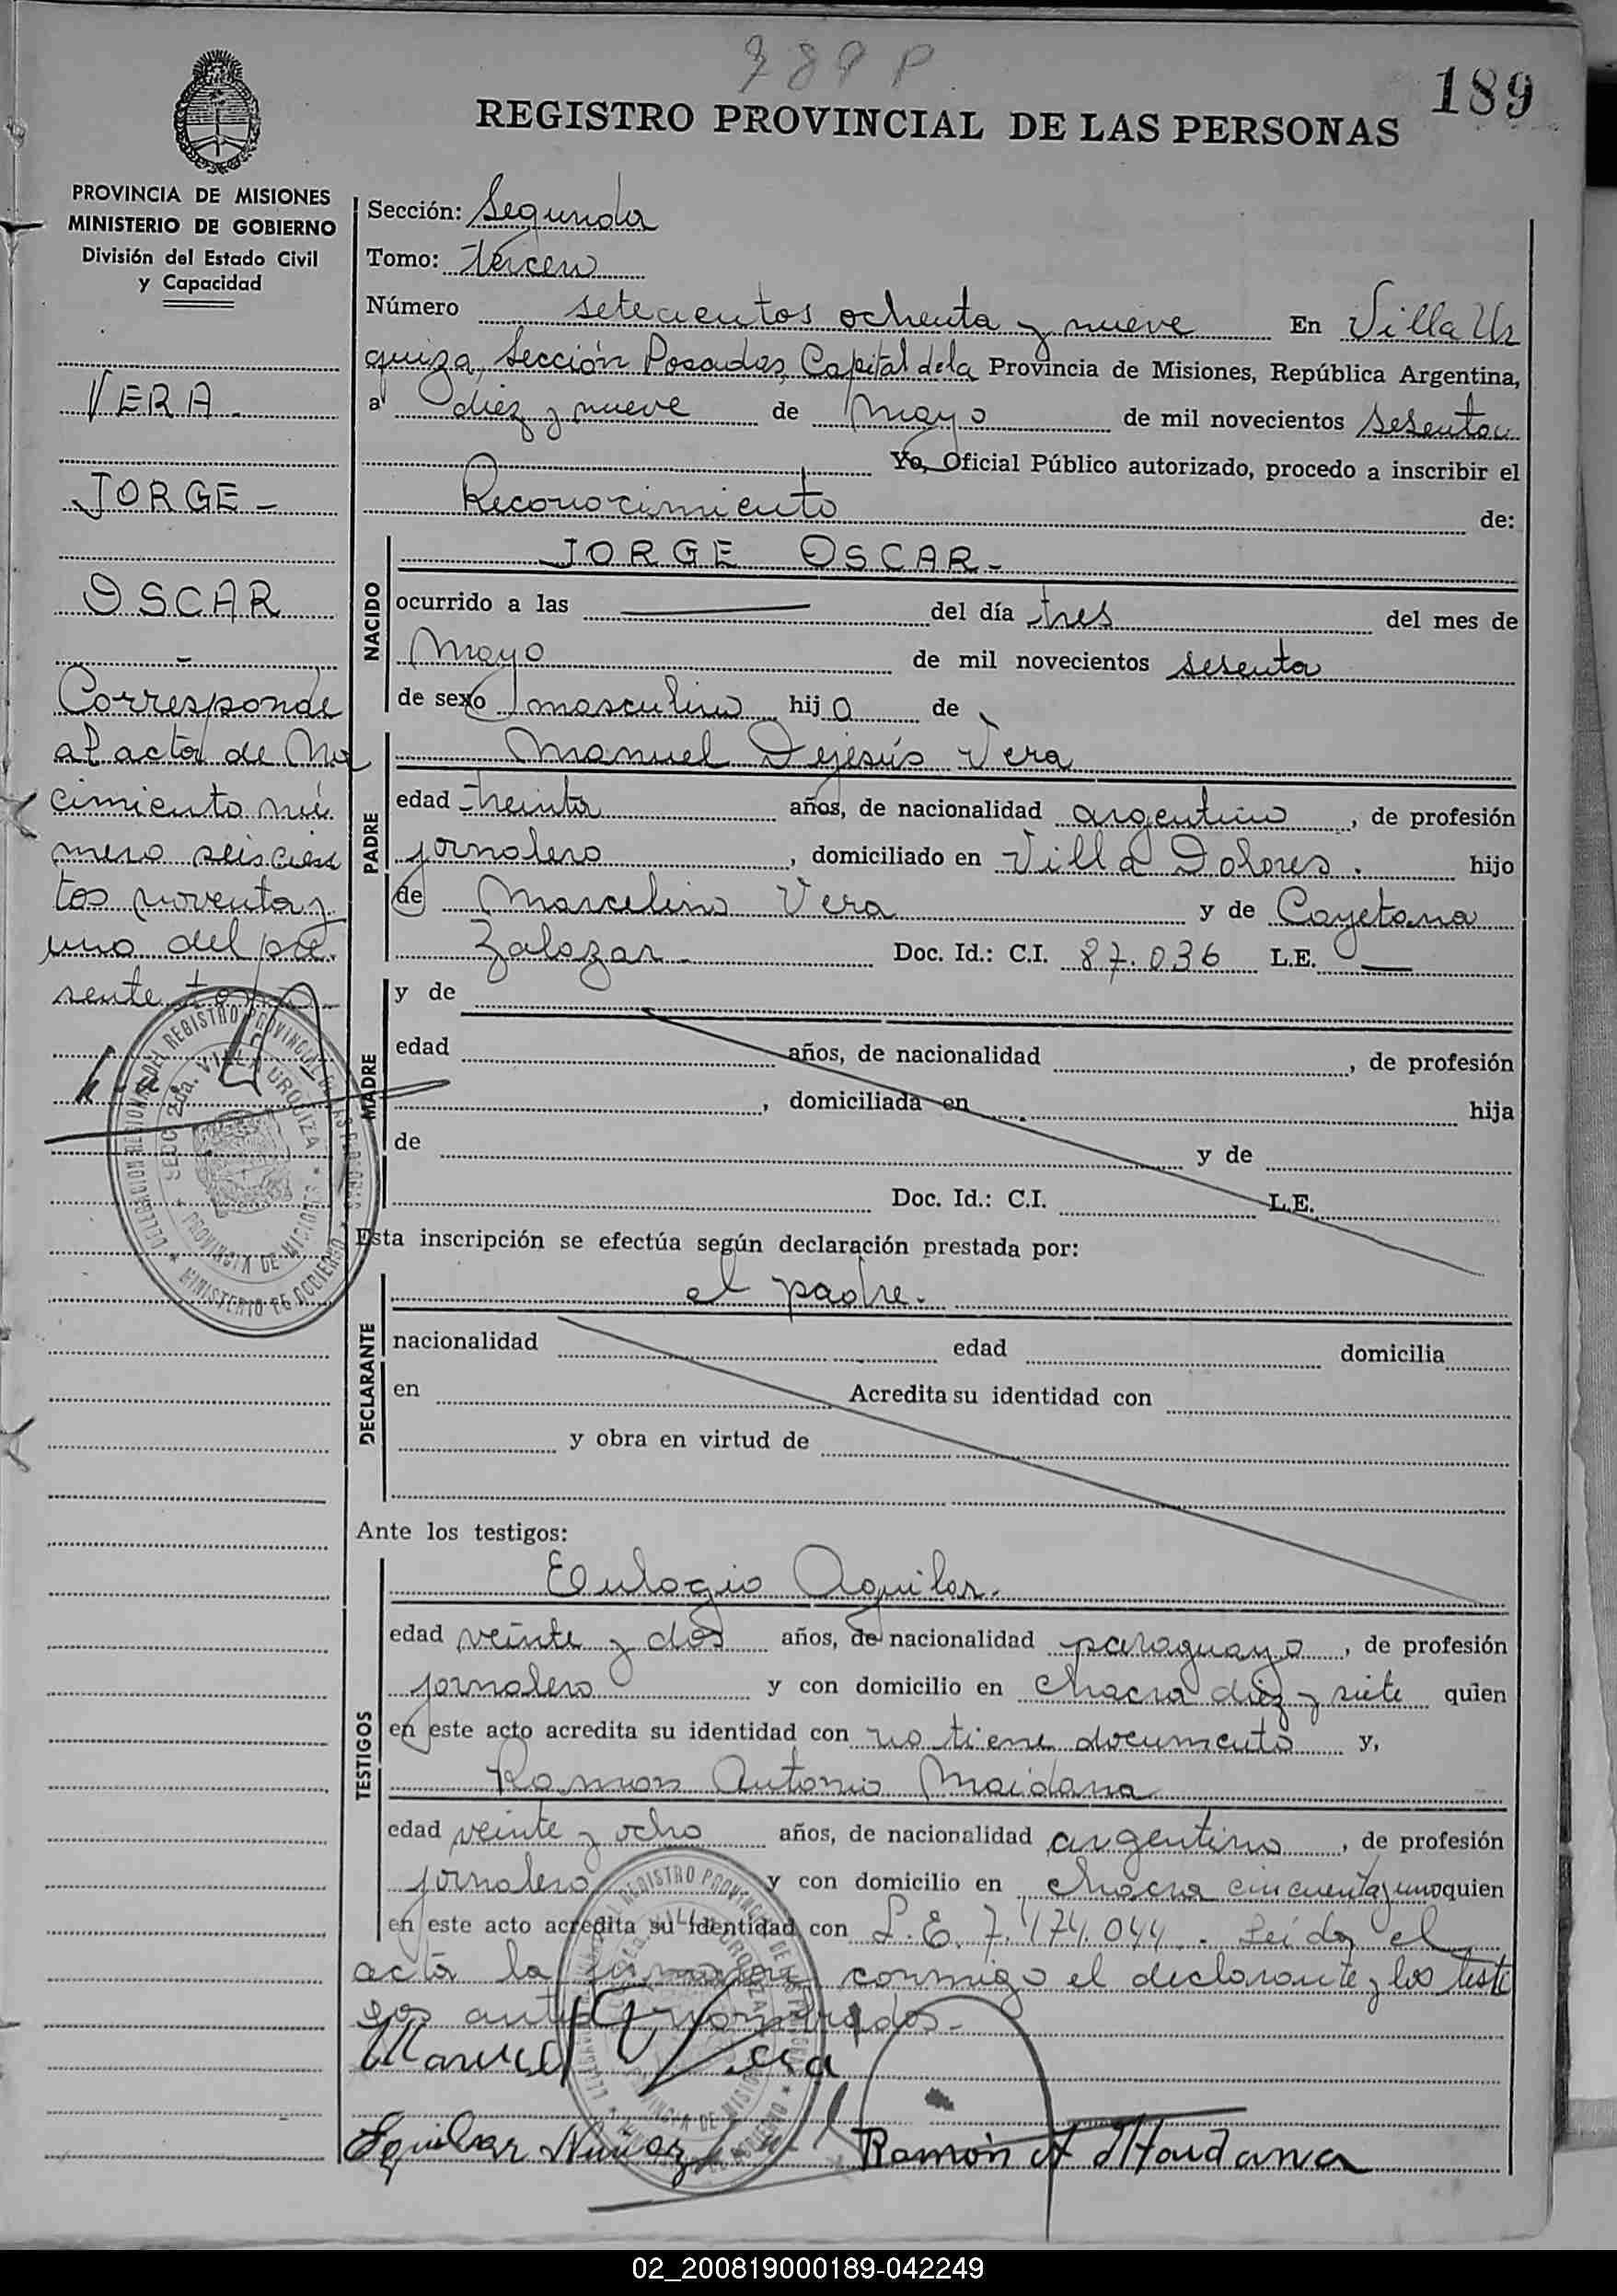 789 P
189
REGISTRO PROVINCIAL DE LAS PERSONAS
PROVINCIA DE MISIONES
MINISTERIO DE GOBIERNO
División del Estado Civil
y Capacidad
VERA -
JORGE -
OSCAR
-
Corresponde
al acta de Na
cimiento nú
mero seiscien
tos noventa y
uno del pre-
sente tomo -
DELEGACION REGIONAL DEL REGISTRO PROVINCIAL DE LAS PERSONAS
SECC. 2da. VILLA URQUIZA
PROVINCIA DE MISIONES
MINISTERIO DE GOBIERNO
Sección: Segunda
Tomo: tercero
Número setecientos ochenta y nueve En Villa Ur
quiza, Sección Posadas, Capital de la Provincia de Misiones, República Argentina,
a diez y nueve de Mayo de mil novecientos sesenta
Yo, Oficial Público autorizado, procedo a inscribir el
Reconocimiento de:
NACIDO
JORGE OSCAR -
ocurrido a las —— del día tres del mes de
Mayo de mil novecientos sesenta
de sexo masculino hijo de
PADRE
Manuel Dejesús Vera
edad treinta años, de nacionalidad argentino, de profesión
jornalero, domiciliado en Villa Dolores. hijo
de Marcelino Vera y de Cayetana
Zalazar - Doc. Id.: C.I. 87.036 L.E. —
MADRE
y de
edad años, de nacionalidad , de profesión
, domiciliada en hija
de y de
Doc. Id.: C.I. L.E.
Esta inscripción se efectúa según declaración prestada por:
DECLARANTE
el padre.
nacionalidad edad domicilia
en Acredita su identidad con
y obra en virtud de
Ante los testigos:
TESTIGOS
Eulogio Aguilar.
edad veinte y dos años, de nacionalidad paraguayo, de profesión
jornalero y con domicilio en chacra diez y siete quien
en este acto acredita su identidad con no tiene documento y,
Ramon Antonio Maidana
edad veinte y ocho años, de nacionalidad argentino, de profesión
jornalero y con domicilio en chacra cincuenta y uno quien
en este acto acredita su identidad con L.E. 7.474.044. Leída el
acta la firmaron conmigo el declarante y los testi
gos antes nombrados.-
Manuel Vera
Aguilar Nuñez Ramón A Maidana
02_200819000189-042249